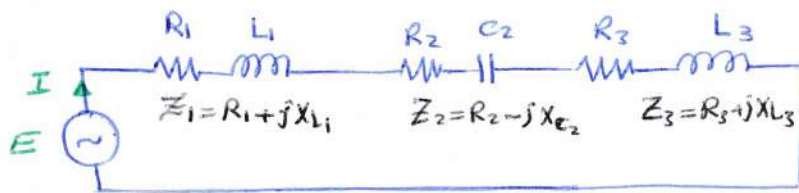 R₁ L₁ R₂ C₂ R₃ L₃
I
Z₁=R₁+jX_L₁ Z₂=R₂-jX_C₂ Z₃=R₃+jX_L₃
E ~